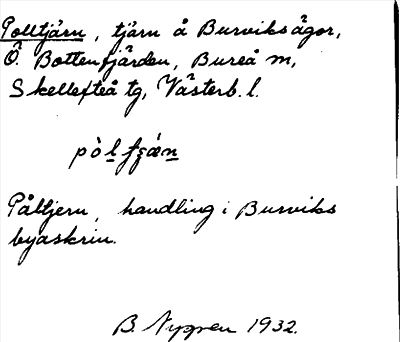 Polltjärn, tjärn å Burviksägor,
Ö. Bottenfjärden, Bureå sn,
Skellefteå tg, Västerb. l.
Påltjern, handling i Burviks
byaskrin.
B. Nygren 1932.